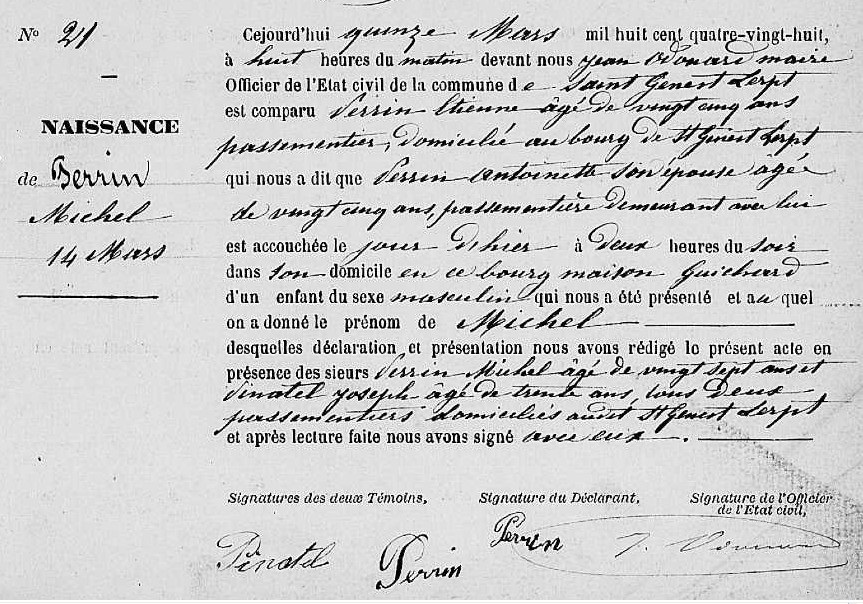 N° 21
NAISSANCE
de Perrin
Michel
14 Mars
Cejourd'hui quinze Mars mil huit cent quatre-vingt-huit,
à huit heures du matin devant nous Jean Odouard maire
Officier de l'Etat civil de la commune de Saint Genest Lerpt
est comparu Perrin Etienne âgé de vingt cinq ans
passementier, domicilié au bourg de St Genest Lerpt
qui nous a dit que Perrin Antoinette son épouse âgée
de vingt cinq ans, passementière demeurant avec lui
est accouchée le jour d'hier à Deux heures du soir
dans son domicile en ce bourg maison Guichard
d'un enfant du sexe masculin qui nous a été présenté et au quel
on a donné le prénom de Michel
desquelles déclaration et présentation nous avons rédigé le présent acte en
présence des sieurs Perrin Michel âgé de vingt sept ans et
Pinatel Joseph âgé de trente ans, tous Deux
passementiers domiciliés audit St Genest Lerpt
et après lecture faite nous avons signé avec eux.
Signatures des deux Témoins, Signature du Déclarant, Signature de l'Officier
de l'Etat civil,
Pinatel Perrin Perrin J.